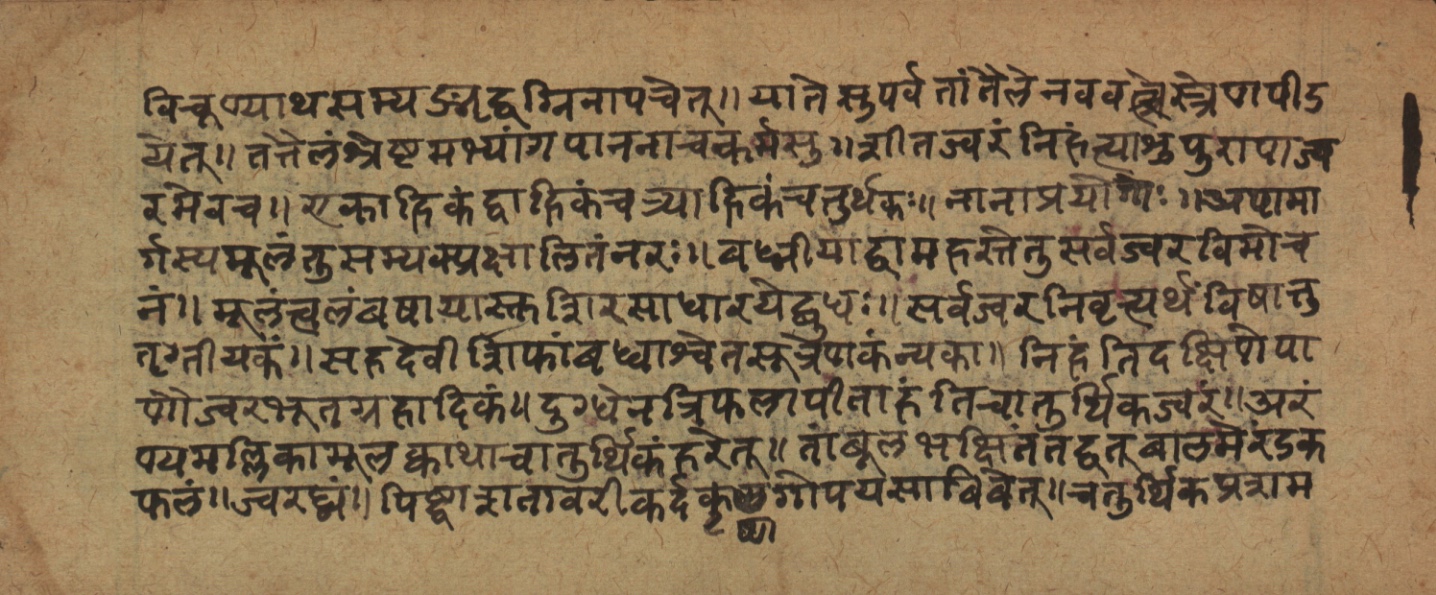 विचूर्ण्याथसम्यङ्मृद्वग्निनापचेत्॥ यातेसुपर्वतांतैलेनववस्त्रेणपीड
येत्॥ तत्तैलंश्रेष्टमभ्यांगपाननाचकर्मसु॥ शीतज्वरंनिहंत्याशुपुरापाज्व
रमेवच॥ एकाह्निकंद्वाह्निकंचत्र्याह्निकंचतुर्थकः॥ नानाप्रयोगाः॥ अपामा
र्गस्यमूलंतुसम्यक्प्रक्षालितंनरः॥ बध्नीयाद्वामहस्तेतुसर्वज्वरविमोच
नं॥ मूलंत्वलंबषायास्तशिरसाधारयेद्बुधः॥ सर्वज्वरनिवृत्यर्थंविषात्तु
तृतीयकं॥ सहदेवीशिफांबध्वाश्वेतसूत्रेणकंन्यका॥ निहंतिदक्षिणेपा
णौज्वरभूतग्रहादिकं॥ दुग्धेनत्रिफलापीताहंतिचातुर्थिकज्वरं॥ अरं
ण्यमल्लिकामूलक्वाथाचातुर्थिकंहरेत्॥ तांबूलभक्षितंतद्वत्बालमेरंडक
फलं॥ ज्वरघ्नं॥ पिष्ट्वाशतावरीकर्दकृष्णगोपयसापिबेत्॥ चतुर्थिकप्रशम
ष्णा